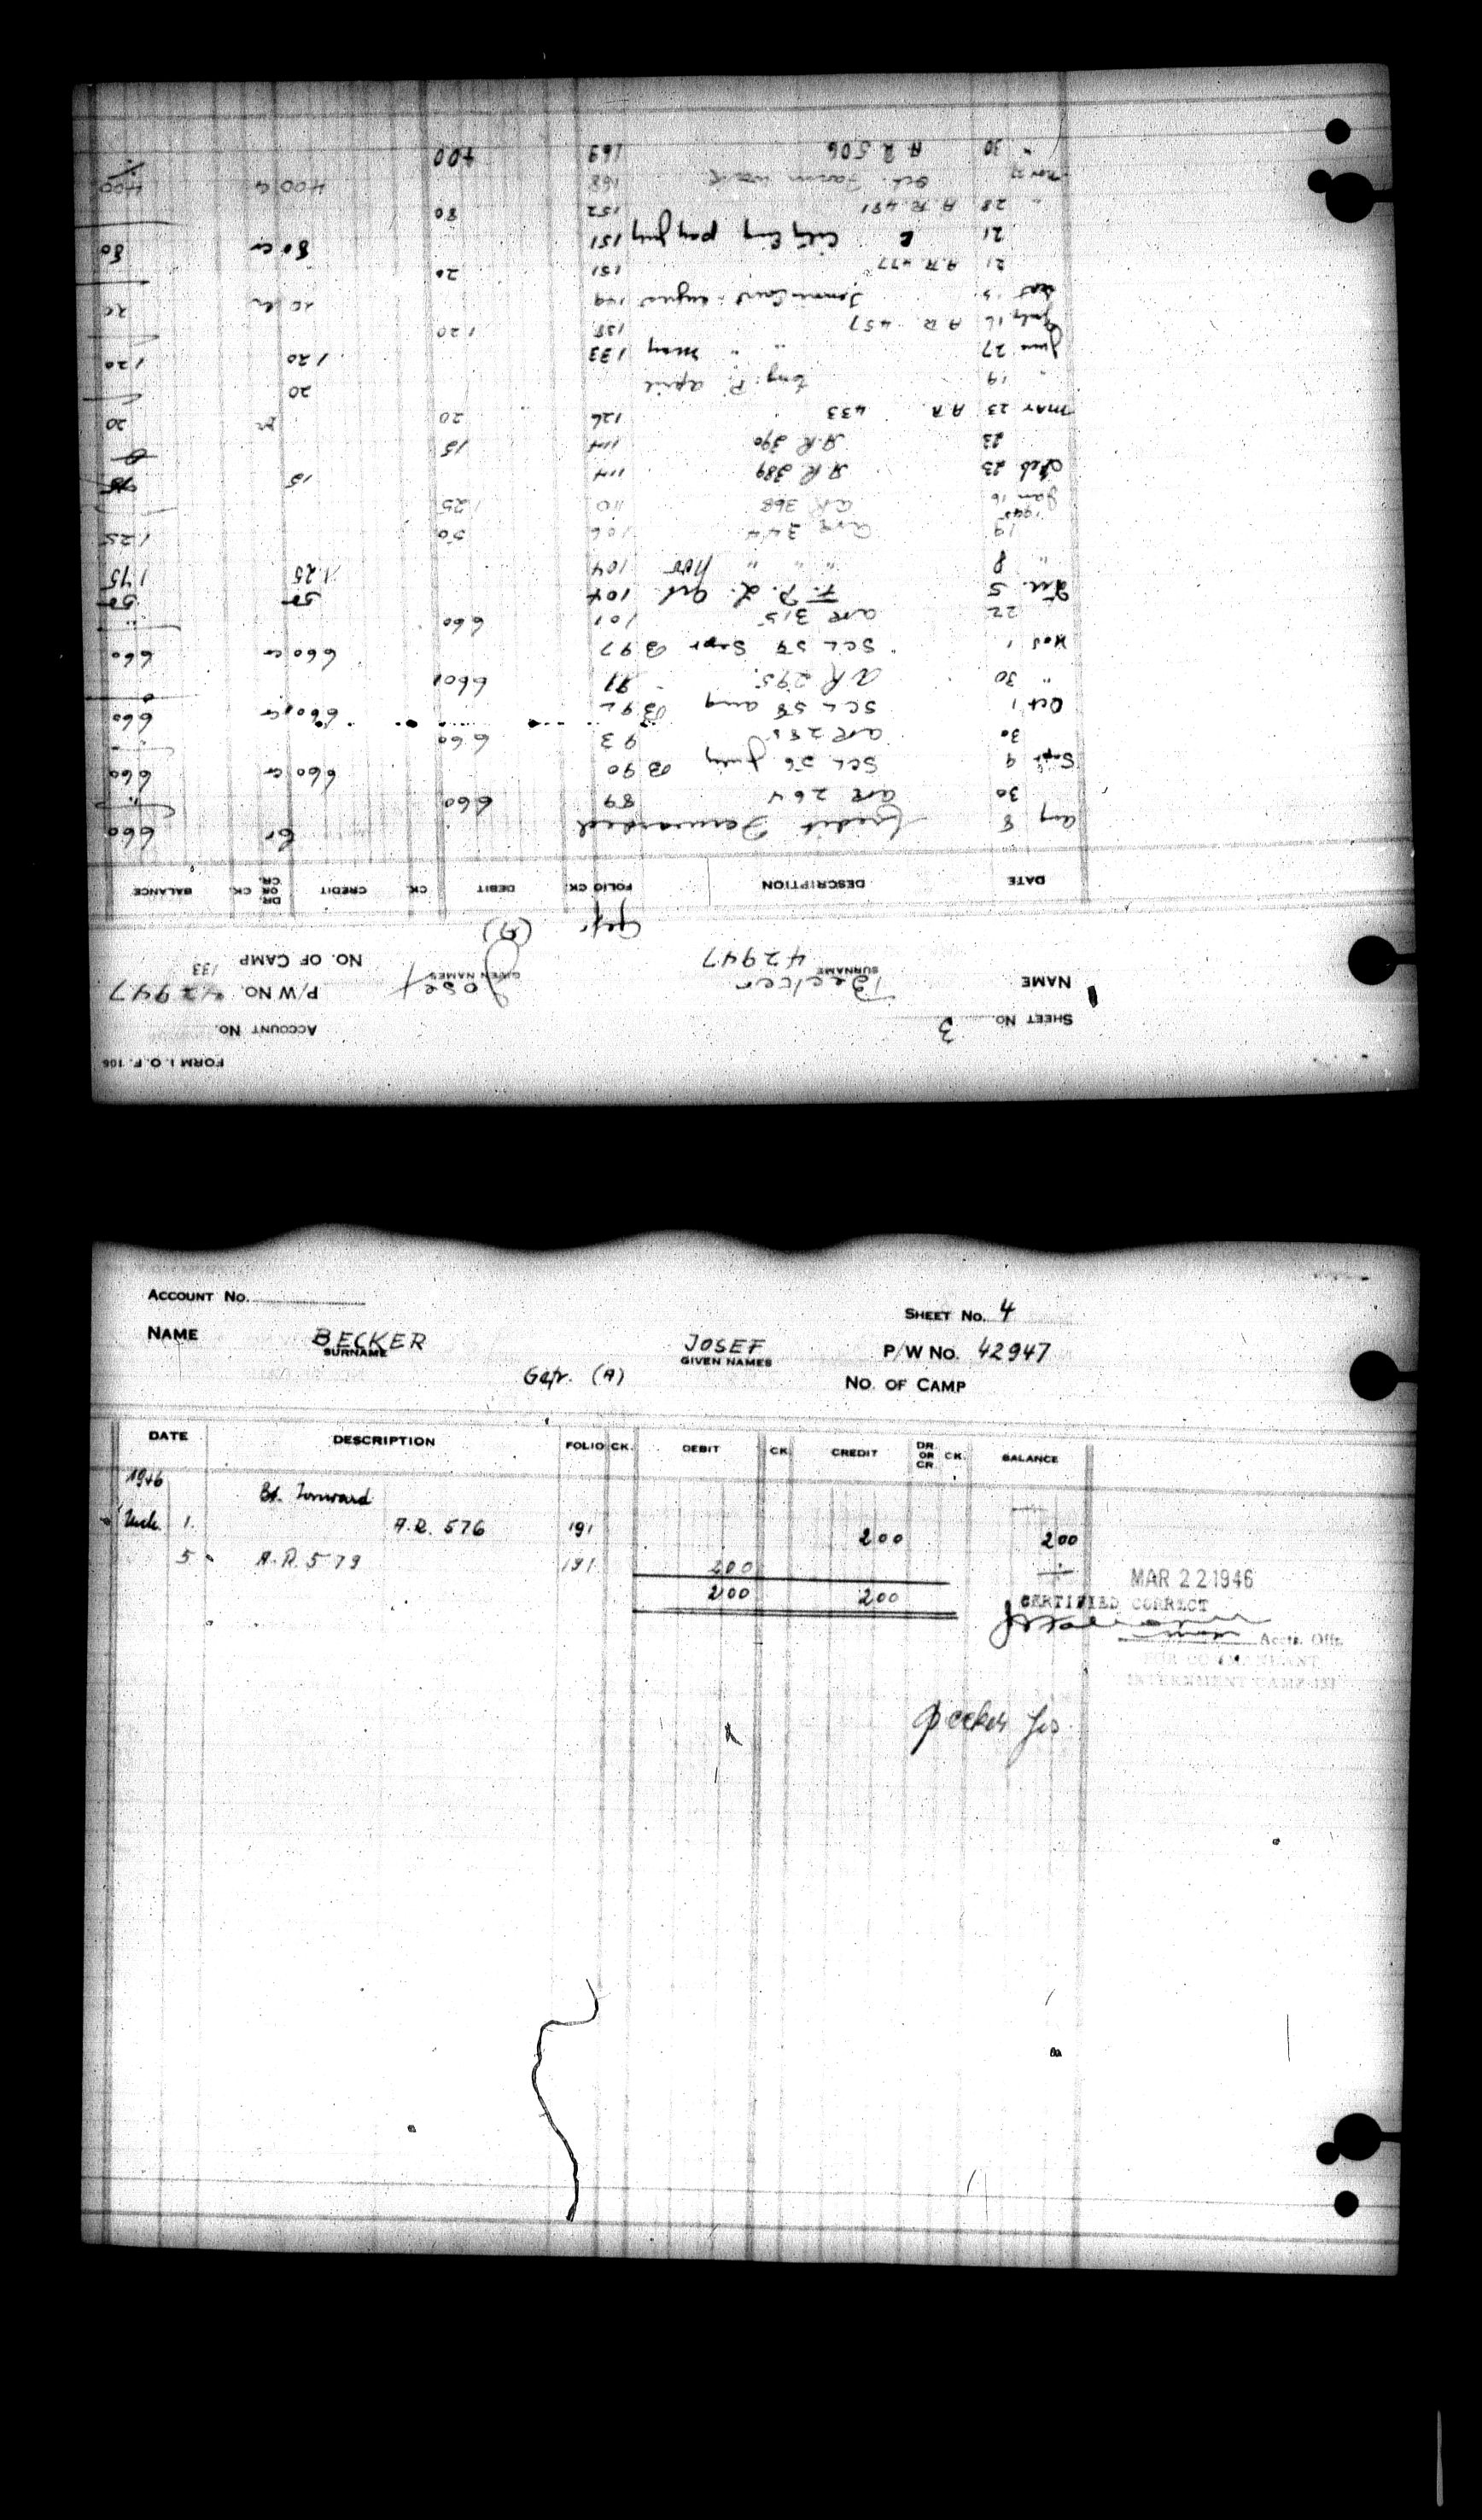 FORM I. O. F. 106
ACCOUNT No.
SHEET No. 3
NAME Becker SURNAME Josef GIVEN NAMES P/W No. 42947
42947 NO. OF CAMP 133
Gefr. (A)
DATE DESCRIPTION FOLIO CK. DEBIT CK. CREDIT DR. OR CR. CK. BALANCE
Aug 8 Credit Forwarded Cr 660
30 AR 264 89 660
Sept 9 SCL 56 July B 90 660 cr 660
30 AR 285 93 660
Oct 1 SCL 58 Aug B 92 660 cr 660
" 30 AR 295 97 660
Nov 1 SCL 59 Sept B 97 660 cr 660
22 AR 315 101 660
Dec. 5 F. P. L. Oct. 104 50 50
" 8 " " " Nov 104 1.25 175
19 AR 344 106 50 125
1945
Jan 16 AR 368 110 125
Feb 23 A.R 389 114 15
23 A.R 390 114 15
MAY 23 A.R. 433 126 20 20
" 19 April 20
June 27 " " May 133 120 120
July 16 A.R. 457 138 120
Sept 15 August 149 20 cr 20
21 A.R. 477 151 20
21 pay July 151 80 cr 80
" 28 A.R. 481 152 80
Nov 27 Oct. Farm Work 168 400 400
" 30 A.R 506 169 400
ACCOUNT No.
SHEET No. 4
NAME BECKER SURNAME JOSEF GIVEN NAMES P/W No. 42947
Gefr. (A) NO. OF CAMP
DATE DESCRIPTION FOLIO CK. DEBIT CK. CREDIT DR. OR CR. CK. BALANCE
1946
Bt. Forward
1. A.R. 576 191 200 200
5 A.R. 579 191 200
200 200
MAR 22 1946
CERTIFIED CORRECT
Accts. Offr.
FOR COMMANDANT
INTERNMENT CAMP 133
Becker Jos.